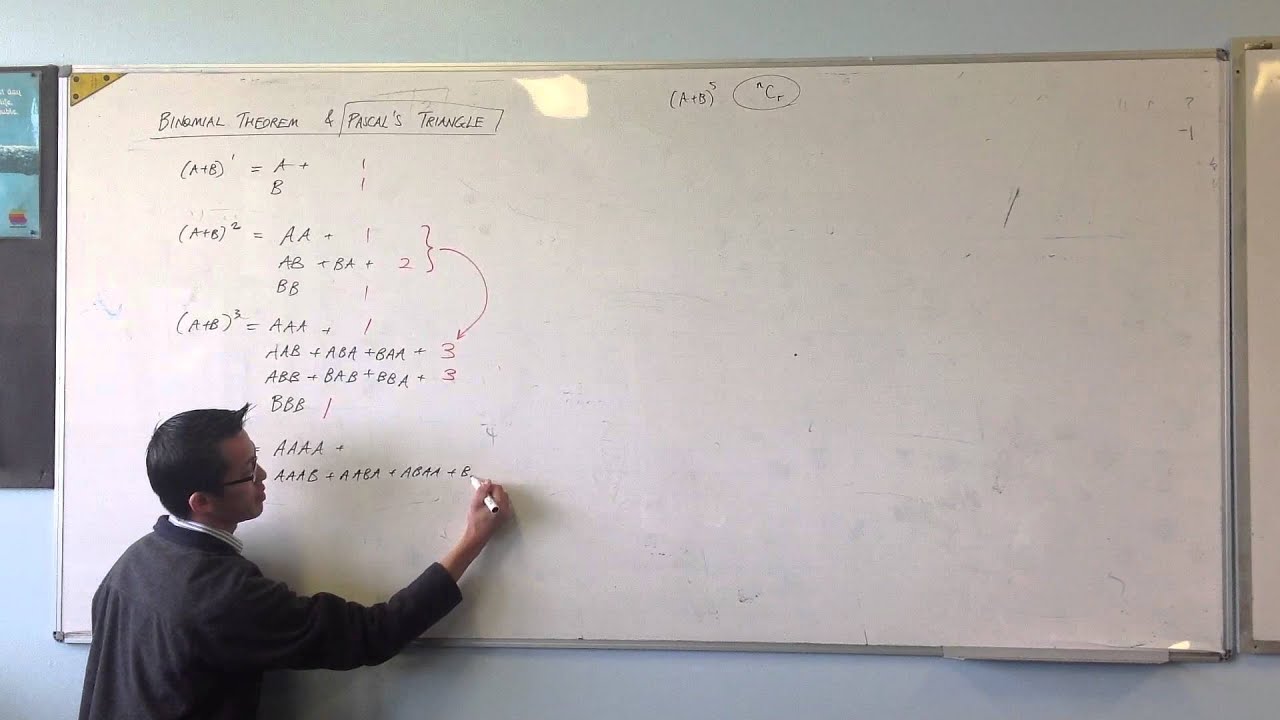 (A+B)⁵ ⁿCᵣ
BINOMIAL THEOREM & PASCAL'S TRIANGLE
(A+B)¹ = A + 1
B 1
(A+B)² = AA + 1
AB + BA + 2
BB 1
(A+B)³ = AAA + 1
AAB + ABA + BAA + 3
ABB + BAB + BBA + 3
BBB 1
= AAAA +
AAAB + AABA + ABAA + B
?
-1